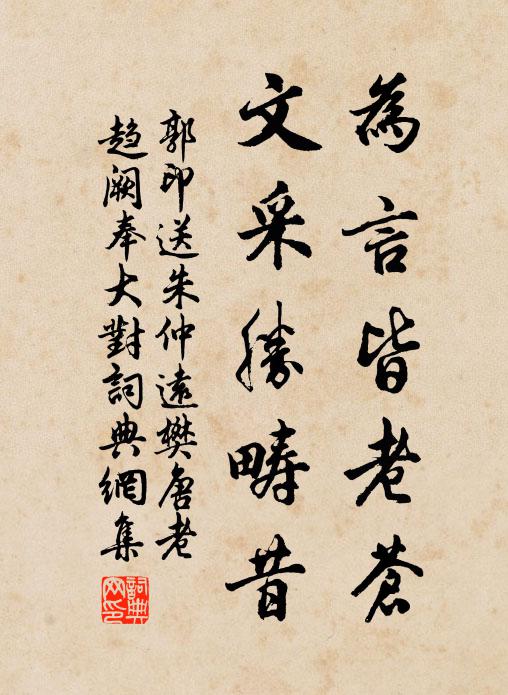 為言皆老蒼
文采勝疇昔
郭印送朱仲遠樊唐老
趨闕奉大對詞典網集
詞典
网印